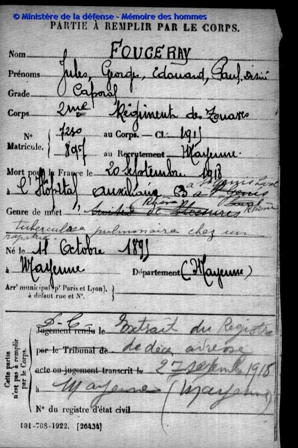 © Ministère de la défense - Mémoire des hommes
PARTIE À REMPLIR PAR LE CORPS.
Nom FOUGERAY
Prénoms Jules, George, Edouard, Paul,
Grade Caporal
Corps 2me Régiment de Zouaves
N° 7250 au Corps. — Cl. 1915
Matricule. 897 au Recrutement Mayenne
Mort pour la France le 20 septembre 1918
à l'Hôpital auxiliaire
Rhône
Genre de mort Suites de Blessures
tuberculose pulmonaire chez un
Né le 18 Octobre 1895
à Mayenne Département (Mayenne)
Arr' municipal (p' Paris et Lyon),
à défaut rue et N°.
Cette partie n'est pas à remplir par le Corps.
Jugement rendu le Extrait du Registre
par le Tribunal de décès
acte ou jugement transcrit le 27 septembre 1918
à Mayenne (Mayenne)
N° du registre d'état civil
101-708-1922. [26434]